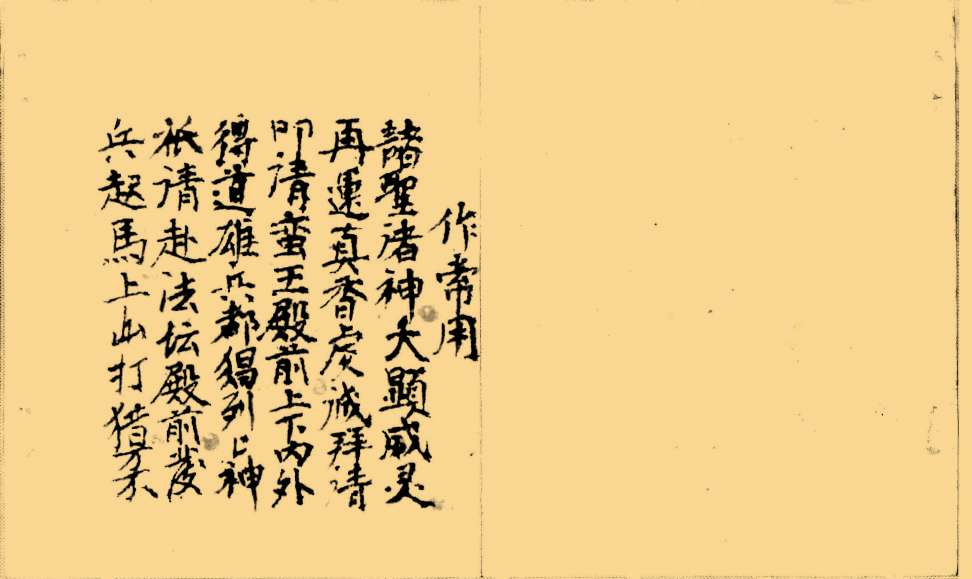 作常用
諸聖诸神大顯威灵
再運真香虔诚拜请
叩请蛮王殿前上下內外
得道雄兵都猖列上神
祇请赴法坛殿前发
兵起馬上山打猎